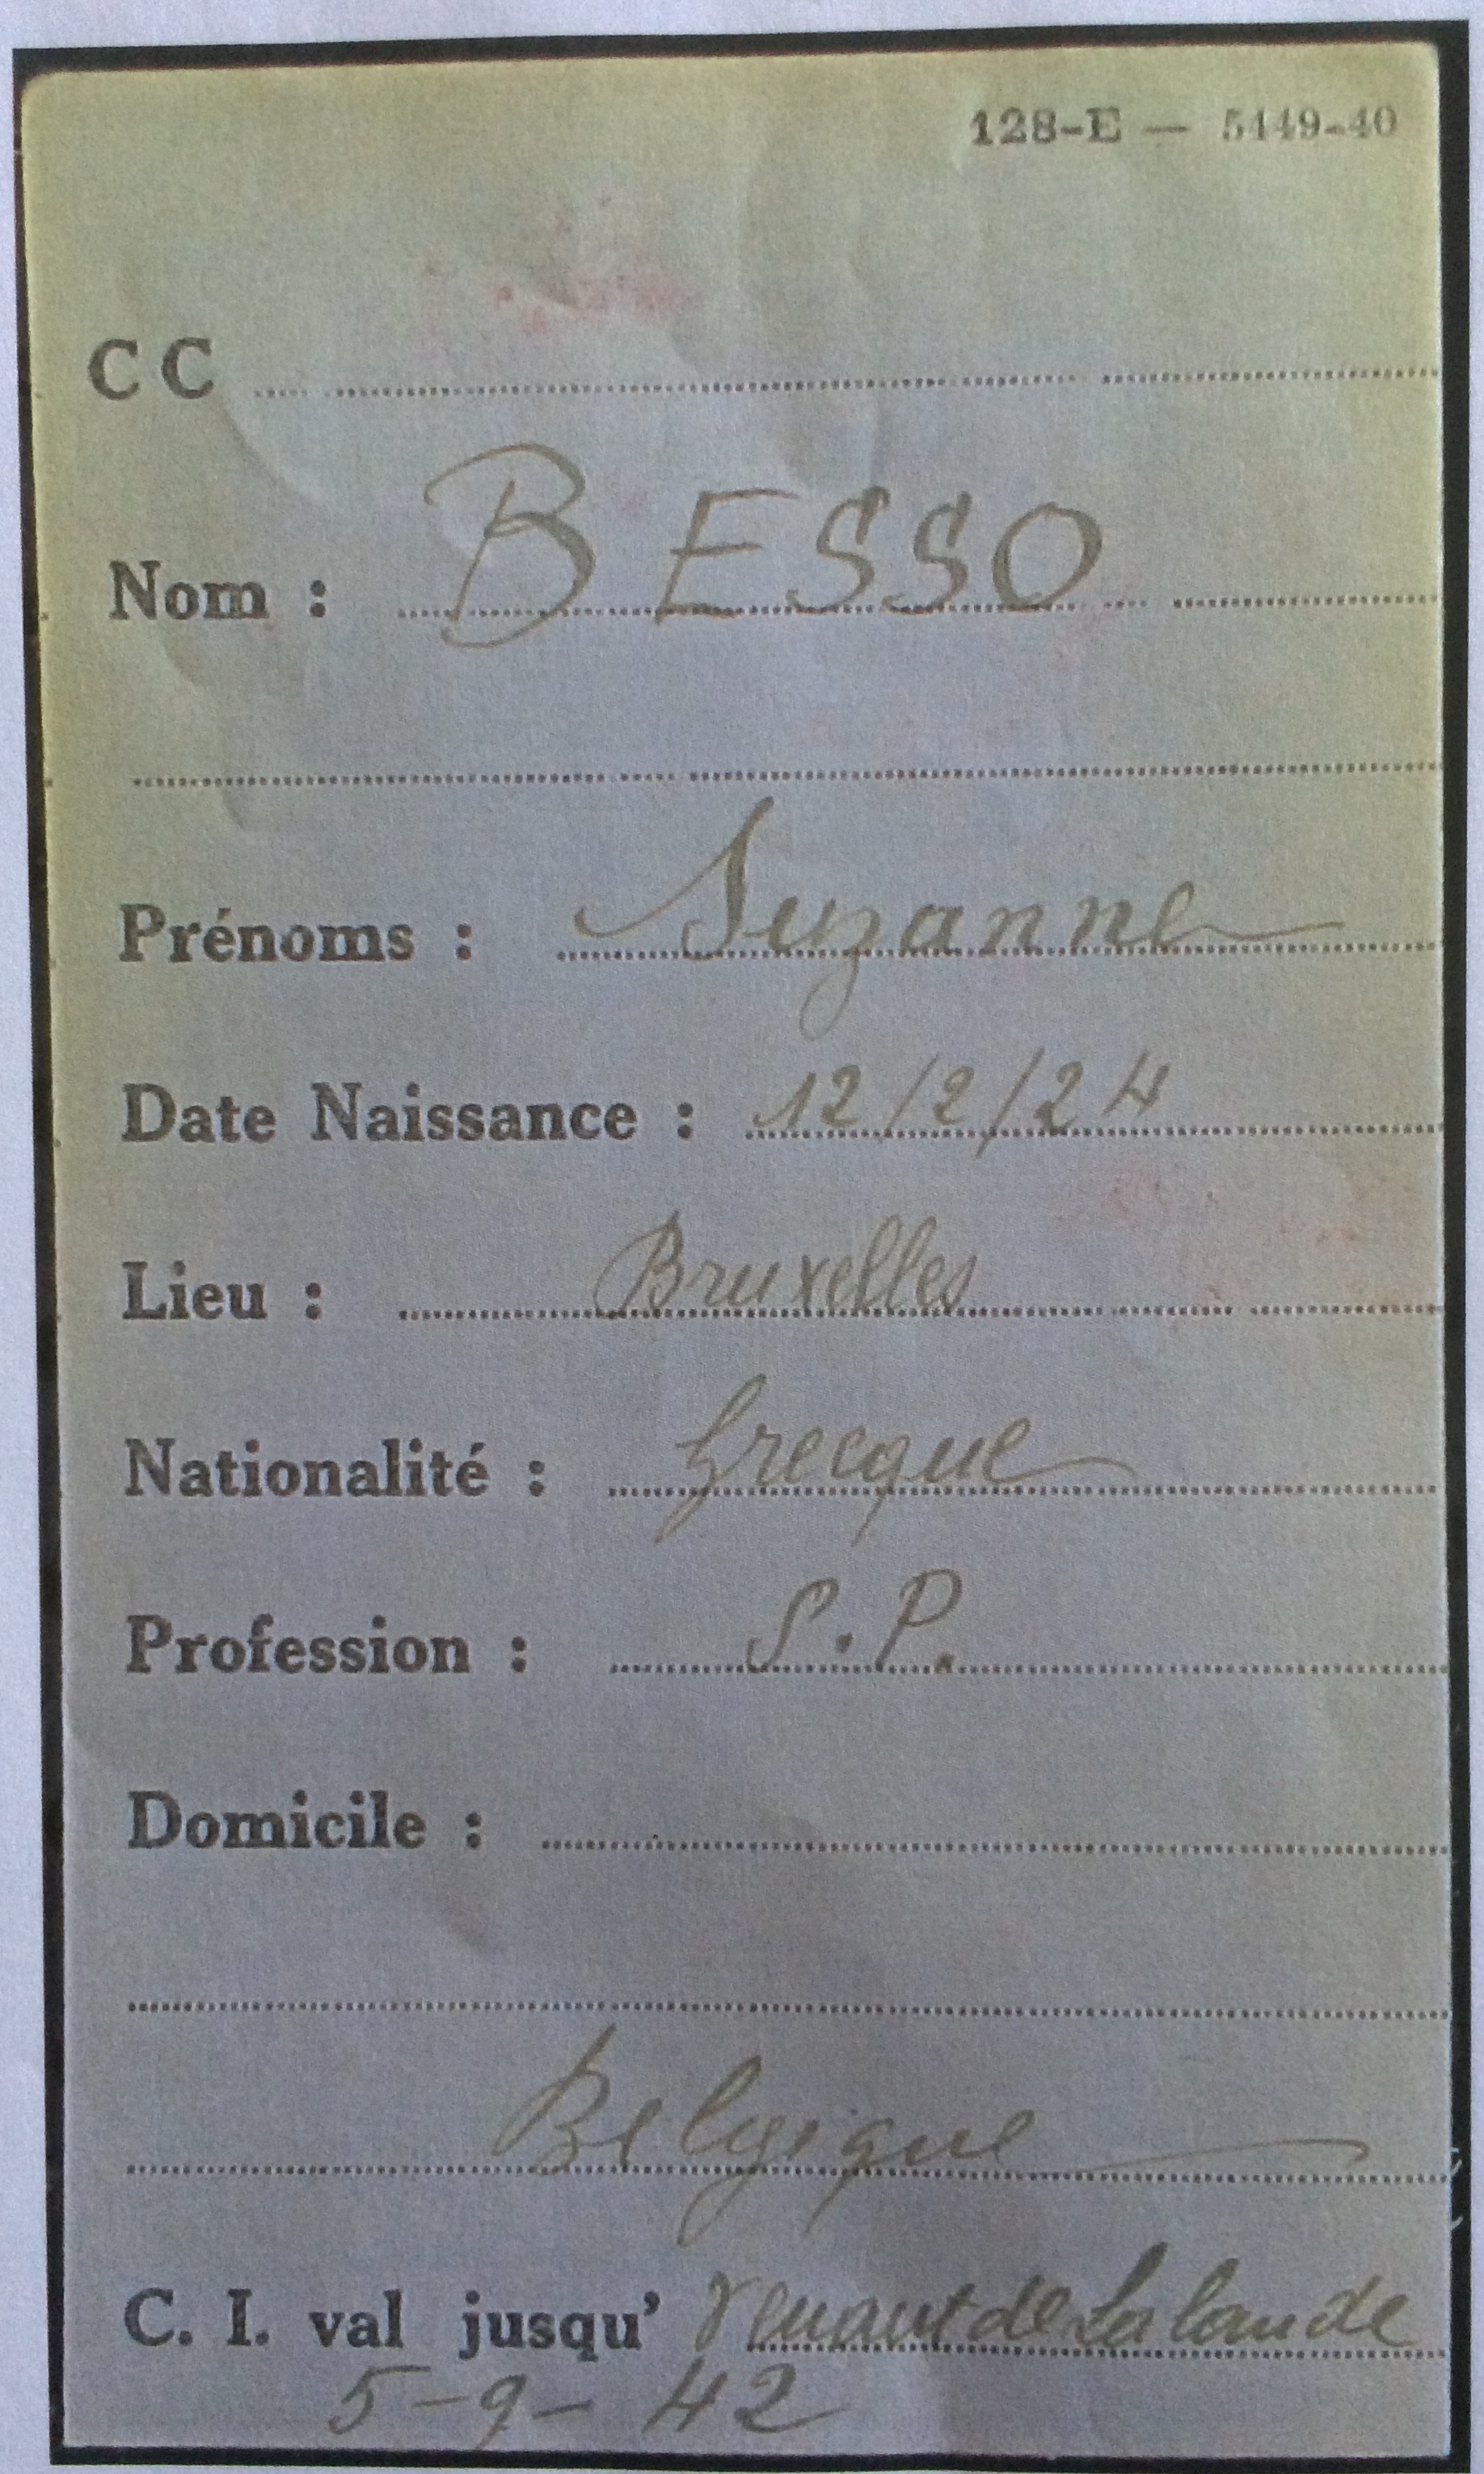 128-E — 5449-40
C C
Nom : BESSO
Prénoms : Suzanne
Date Naissance : 12/2/24
Lieu : Bruxelles
Nationalité : Grecque
Profession : S.P.
Domicile :
Belgique
C. I. val jusqu' Venant de La lande
5-9-42